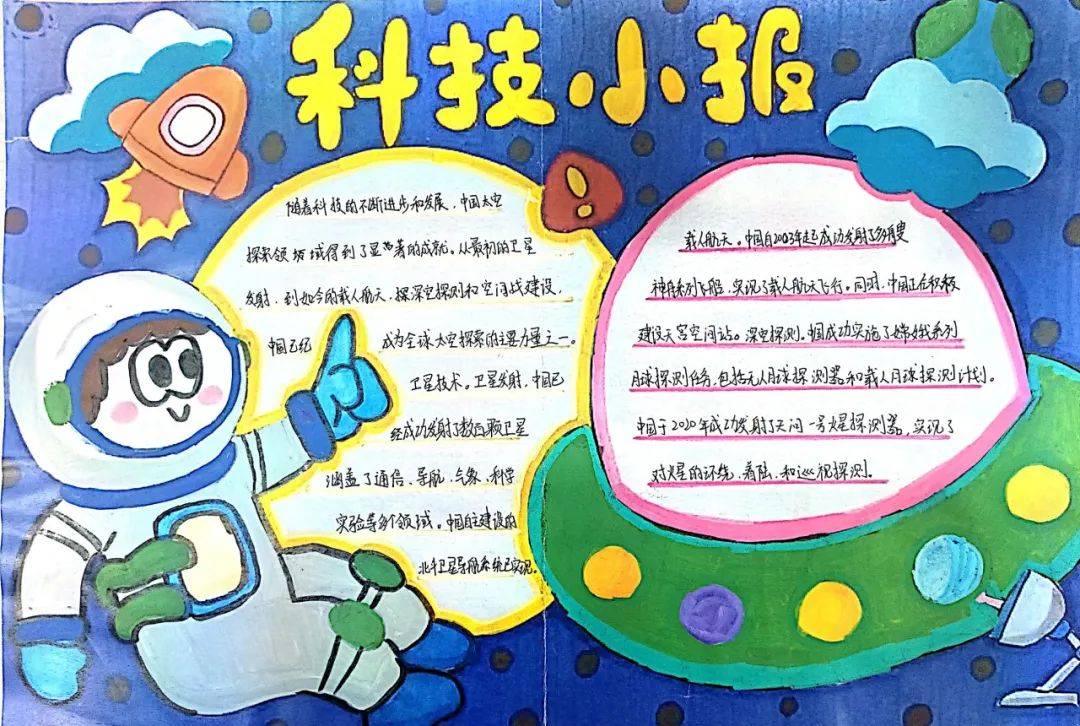 科技小报
随着科技的不断进步和发展，中国太空
探索领域得到了显著的成就。从最初的卫星
发射，到如今的载人航天，探深空探测和空间战建设，
中国已纪
成为全球太空探索的主要力量之一。
卫星技术。卫星发射，中国已
经成功发射了数百颗卫星
涵盖了通信、导航、气象、科学
实验等多个领域。中国自主建设的
北斗卫星导航系统已实现。
载人航天。中国自2003年起成功发射了多艘
神舟系列飞船，实现了载人航天飞行。同时，中国正在积极
建设天宫空间站。深空探测，中国成功实施了嫦娥系列
月球探测任务，包括无人月球探测器和载人月球探测计划。
中国于2020年成功发射了天问一号火星探测器，实现了
对火星的环绕，着陆，和巡视探测。